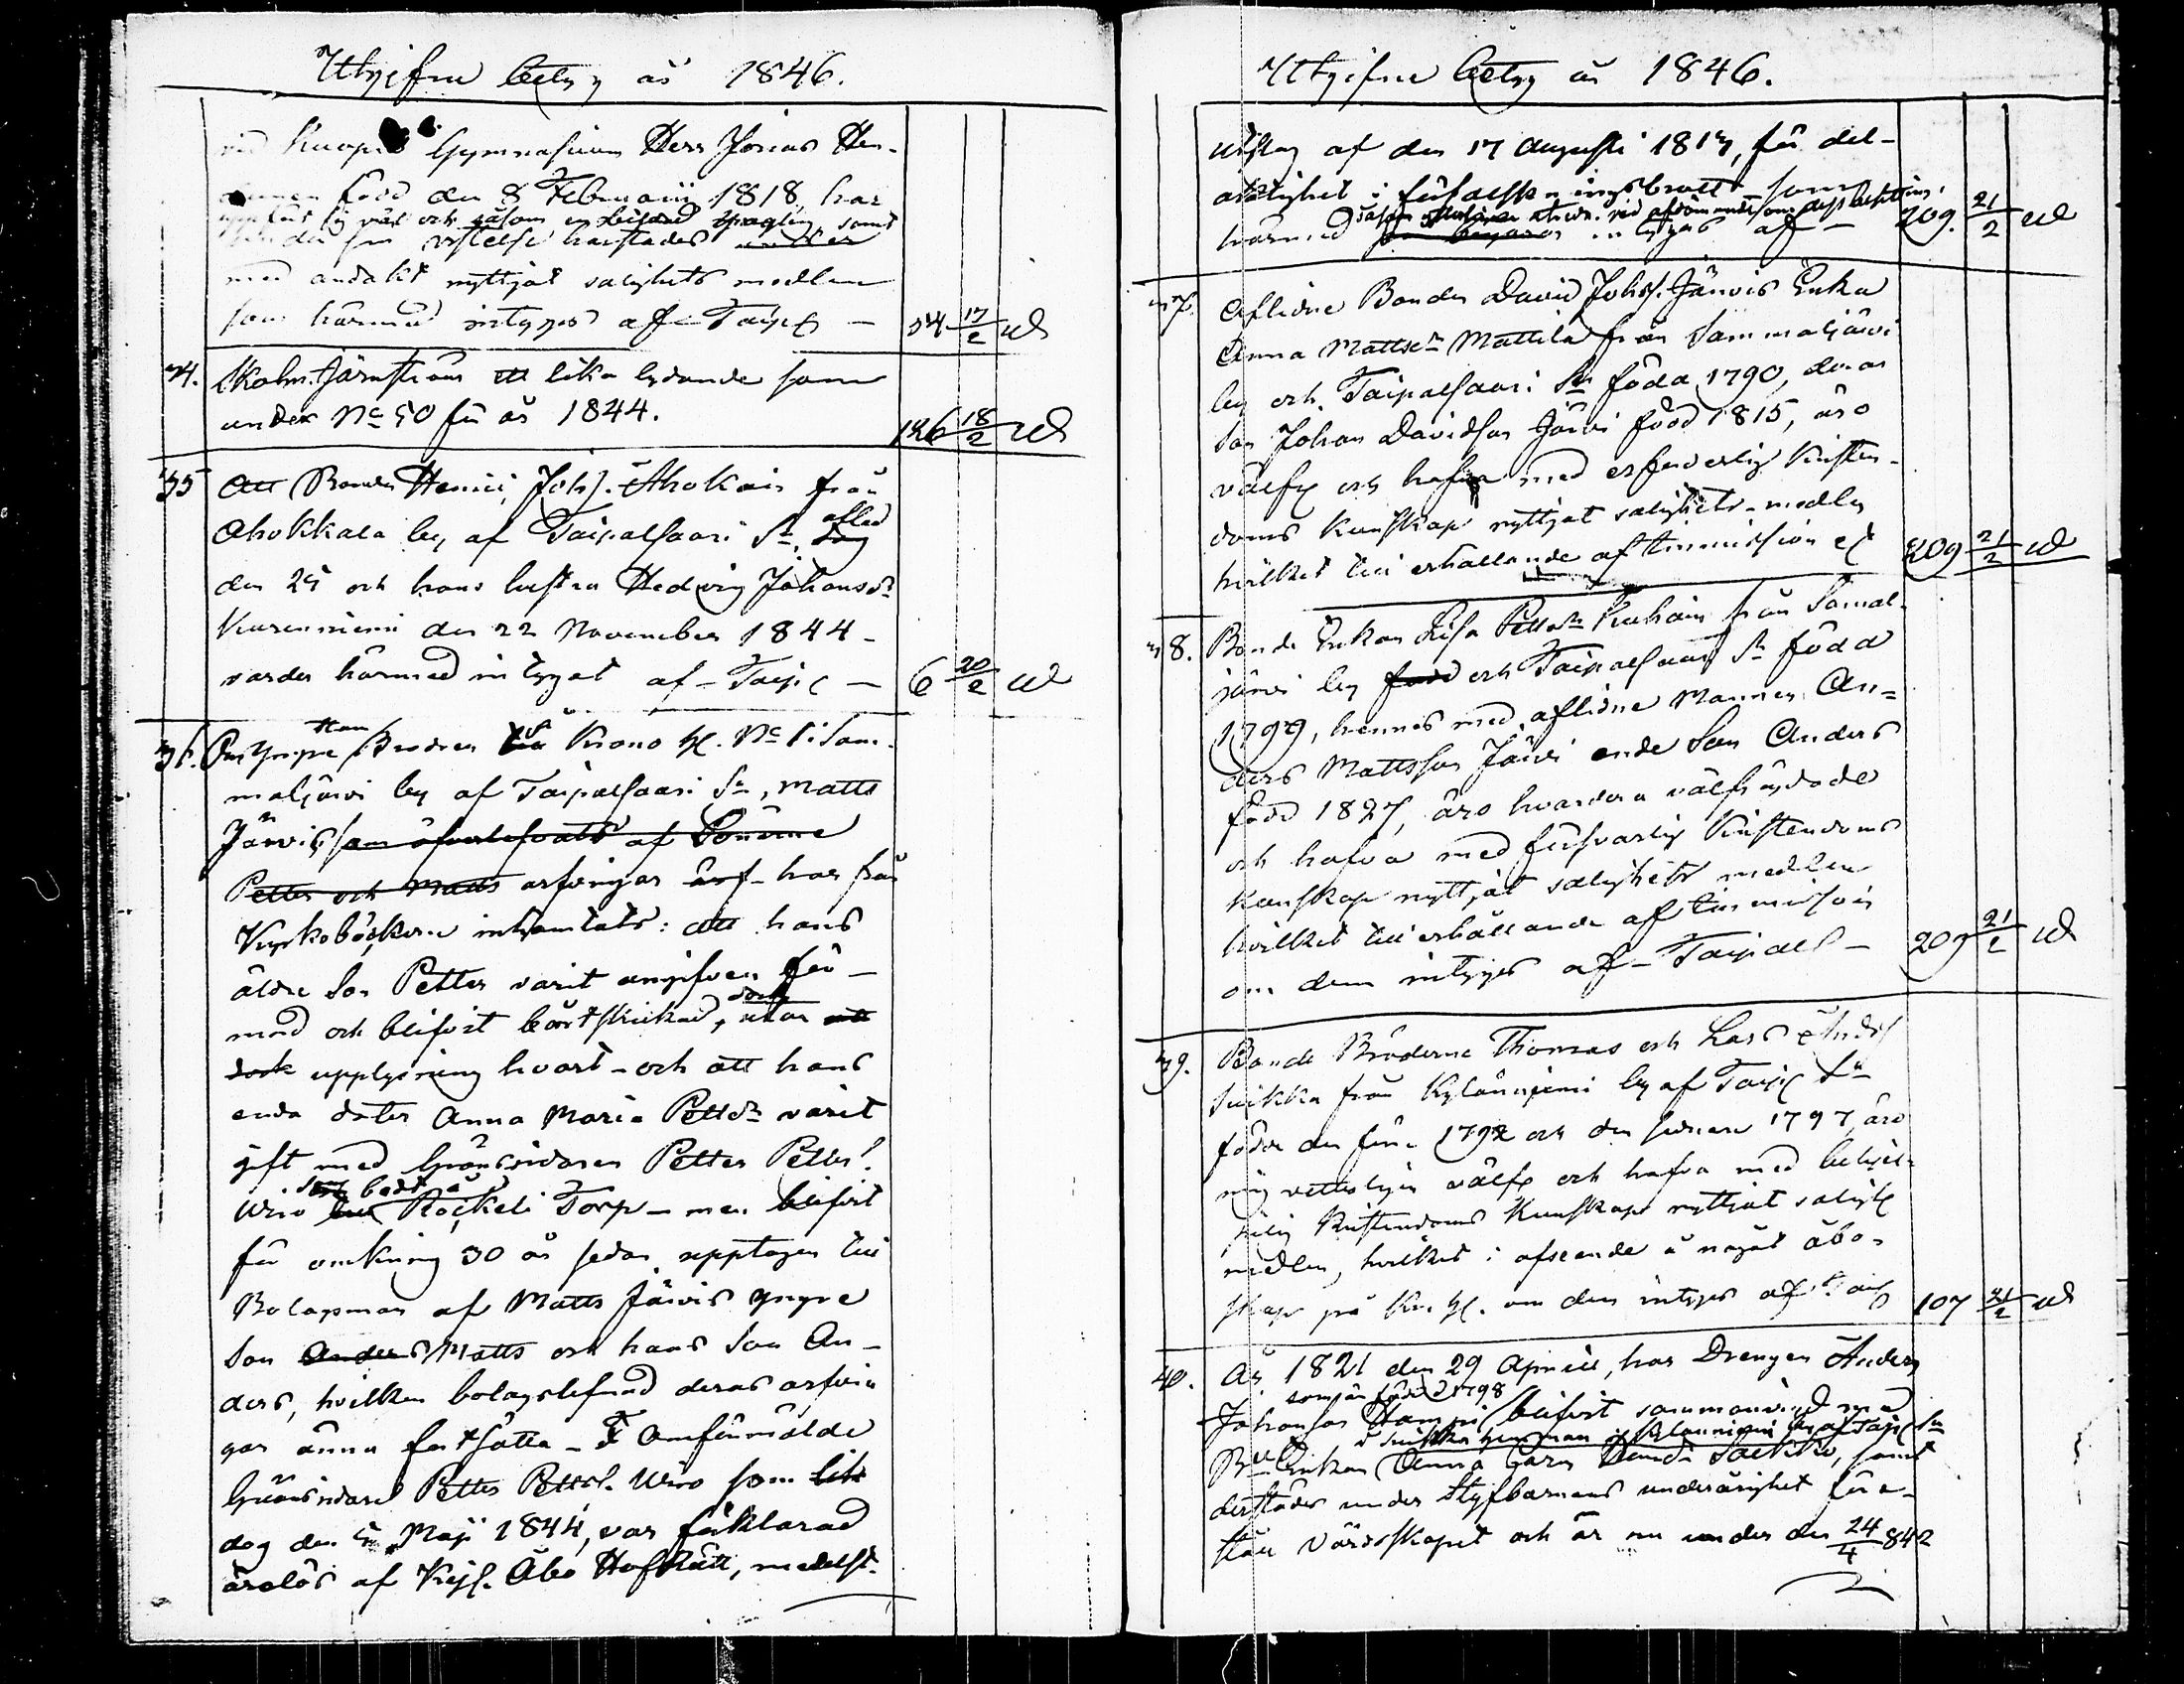 Utgifne Betyg år 1846.
vid Kuopio Gymnasium Herr Jonas
född den 8 Februarii 1818, har
uppfört sig väl och såsom en yngling samt
under sin vistelse härstädes
med andakt nyttjat salighets medlen
som härmed intygas af Taip — 54 17/2 ud
34. Skolm. Järnström ett lika lydande som
under No 50 för år 1844. 126 18/2 ud
35 Att Bonden Henric Johs. Ahokain från
Ahokkala by af Taipalsaari Sn, afled
den 25 och hans hustru Hedvig Johansdr
Kurenniemi den 22 November 1844 -
varder härmed intygat af - Taip — 6 20/2 ud
36. Om yngre Brodren på Krono H. No 1 i Sam-
maljärvi by af Taipalsaari Sn, Matts
Järvis som öfverlefvats af Sönerne
Petter och Matts arfvingar har från
Kyrkoböckerne inhämtats: att hans
äldre Son Petter varit angifven för
och blifvit bortskickad, dock utan
dock upplysning hvart - och att hans
enda dotter Anna Maria Pettdr varit
gift med Gränsridaren Petter Petters.
Wiro Röckeli Torp - men blifvit
för omkring 30 år sedan upptagen till
Bolagsman af Matts Järvis yngre
Son Anders Matts och hans Son An-
ders, hvilken bolagslefnad deras arfvin
gar ännu fortsätta - Omförmälde
Gränsridare Petter Petters. Wiro som
dog den 5 Maji 1844, var förklarad
ärelös af Kejs. Åbo HofRätt, medelst
Utgifne Betyg år 1846.
utslag af den 17 Augusti 1813, för del-
aktighet i förfalskningsbrott som
härmed intygas af — 209. 21/2 ud
37. Aflidne Bonden David Johss. Järvis Enka
Anna Mattsdr Mattila från Sammaljärvi
by och Taipalsaari Sn född 1790, deras
Son Johan Davidson Järvi född 1815, äro
välfr och hafva med erforderlig Kristen-
doms Kunskap nyttjat salighets-medlen
hvilket till erhållande af Immission 209 21/2 ud
38. Bonde Enkan Lisa Pettdr Kuhain från Samal-
järvi by född och Taipalsaari Sn född
1799, hennes med aflidne Mannen An=
ders Mattsson Järvi ende Son Anders
född 1827, äro hvardera välfräjdade
och hafva med försvarlig Kristendoms
Kunskap nyttjat salighets medlen
hvilket till erhållande af Immission
om dem intygas af - Taipals - 209 21/2 ud
39. Bonde Bröderne Thomas och Lars Anders
Suikka från Kylänniemi by af Taip Sn
födde den förre 1792 och den senare 1797, äro
välfr och hafva med
Kristendoms Kunskap nyttjat saligh
medlen, hvilket i afseende å något åbo-
skap på Kr. H. om dem intygas af Taip 107 21/2 ud
40. År 1821 den 29 April, har Drengen Anders
som är född 1798
Johansson Hampi blifvit sammanvigd med
Suikka hemman i Kylänniemi by af Taip Sn
Bde Enkan Anna Suikka, samt
derstädes under Styfbarnens underårighet före-
stått Värdskapet och är nu under den 24/4 842